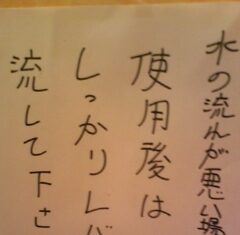 水の流れが悪い場
使用後は
しっかりレバ
流して下さ